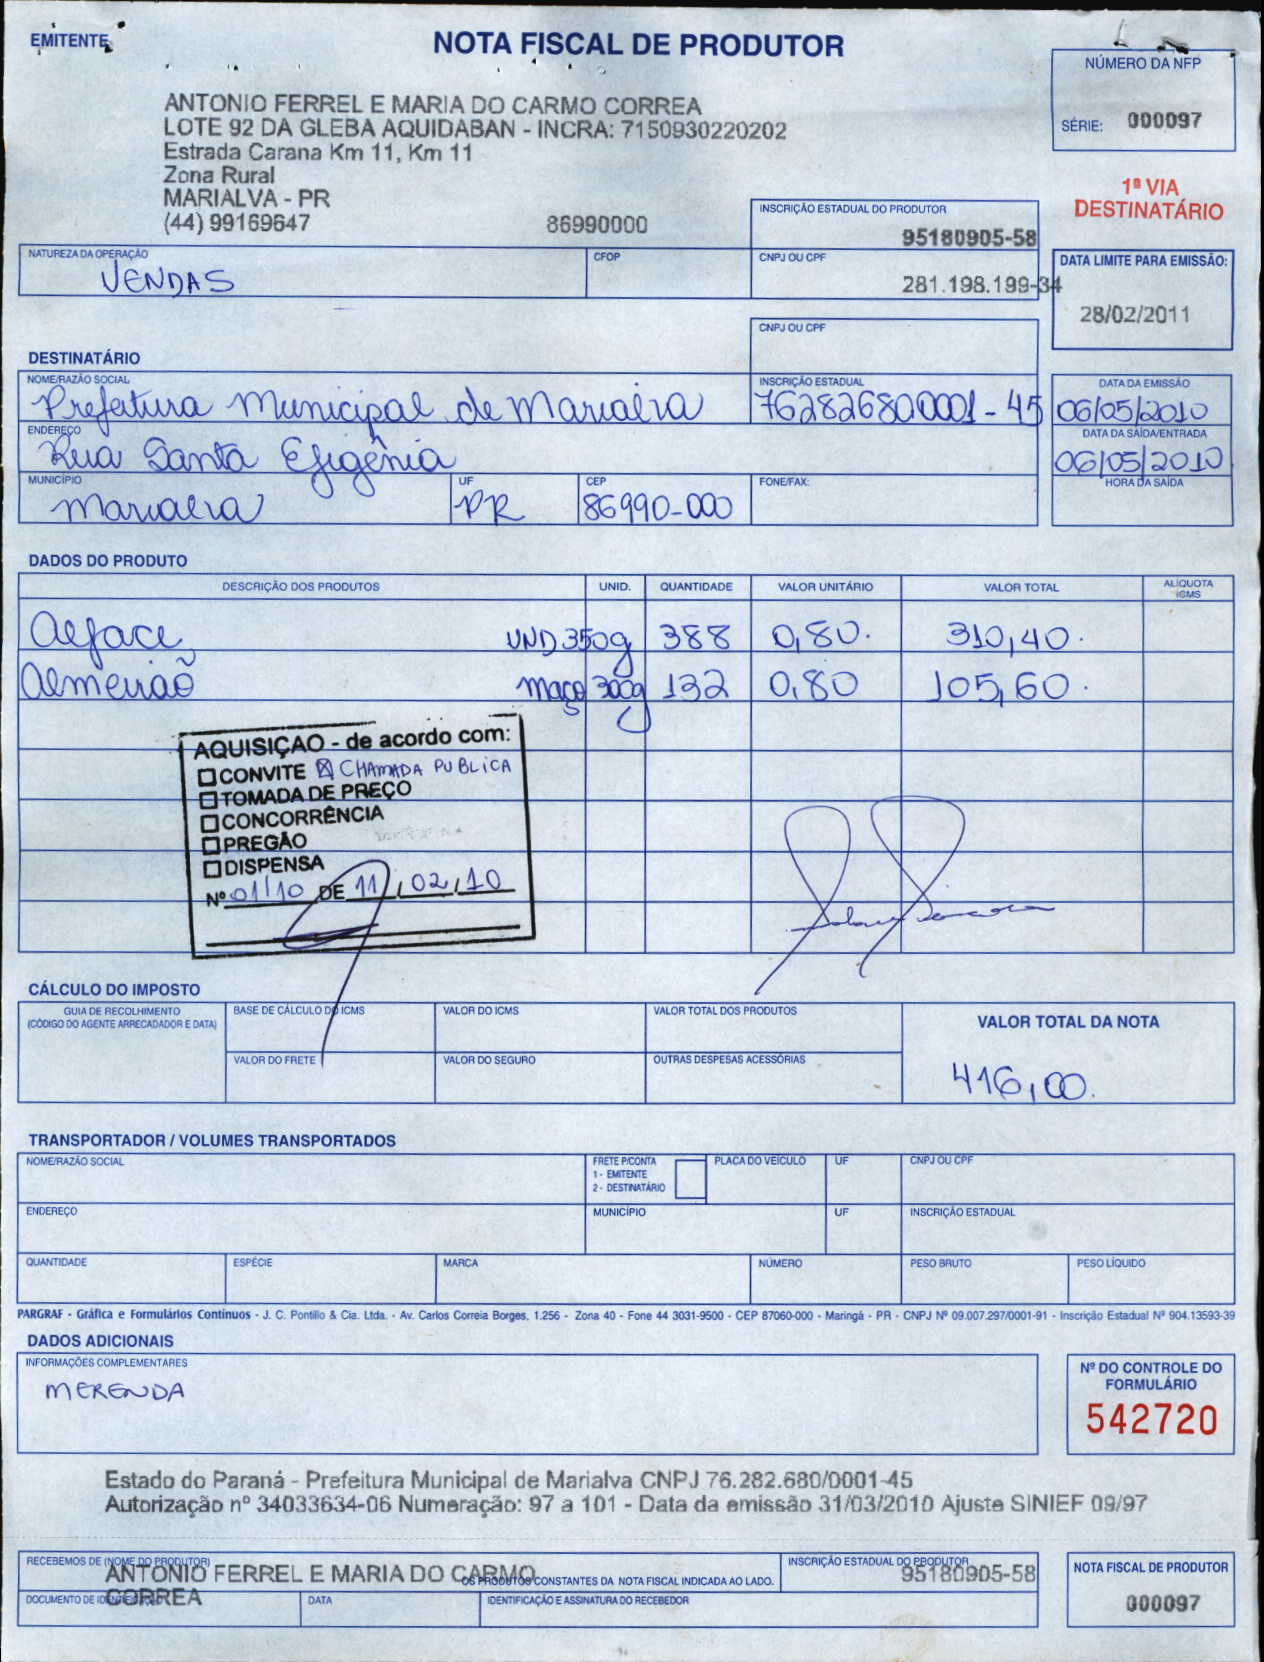 EMITENTE
NOTA FISCAL DE PRODUTOR
NÚMERO DA NFP
SÉRIE: 000097
ANTONIO FERREL E MARIA DO CARMO CORREA
LOTE 92 DA GLEBA AQUIDABAN - INCRA: 7150930220202
Estrada Carana Km 11, Km 11
Zona Rural
MARIALVA - PR
(44) 99169647 86990000
1ª VIA
DESTINATÁRIO
INSCRIÇÃO ESTADUAL DO PRODUTOR
95180905-58
NATUREZA DA OPERAÇÃO CFOP CNPJ OU CPF
VENDAS 281.198.199-34
DATA LIMITE PARA EMISSÃO:
28/02/2011
CNPJ OU CPF
DESTINATÁRIO
NOME/RAZÃO SOCIAL INSCRIÇÃO ESTADUAL DATA DA EMISSÃO
Prefeitura Municipal de Marialva 762826800001-45 06/05/2010
ENDEREÇO DATA DA SAÍDA/ENTRADA
Rua Santa Efigênia 06/05/2010
MUNICÍPIO UF CEP FONE/FAX: HORA DA SAÍDA
Marialva PR 86990-000
DADOS DO PRODUTO
DESCRIÇÃO DOS PRODUTOS UNID. QUANTIDADE VALOR UNITÁRIO VALOR TOTAL ALÍQUOTA ICMS
Alface UND 350g 388 0,80. 310,40.
Almeirão maço 300g 132 0,80 105,60.
AQUISIÇÃO - de acordo com:
CONVITE ☒ CHAMADA PUBLICA
TOMADA DE PREÇO
CONCORRÊNCIA
PREGÃO
DISPENSA
Nº 01/10 DE 11/02/10
CÁLCULO DO IMPOSTO
GUIA DE RECOLHIMENTO
(CÓDIGO DO AGENTE ARRECADADOR E DATA)
BASE DE CÁLCULO DO ICMS VALOR DO ICMS VALOR TOTAL DOS PRODUTOS VALOR TOTAL DA NOTA
VALOR DO FRETE VALOR DO SEGURO OUTRAS DESPESAS ACESSÓRIAS
416,00.
TRANSPORTADOR / VOLUMES TRANSPORTADOS
NOME/RAZÃO SOCIAL FRETE P/CONTA PLACA DO VEÍCULO UF CNPJ OU CPF
1 - EMITENTE
2 - DESTINATÁRIO
ENDEREÇO MUNICÍPIO UF INSCRIÇÃO ESTADUAL
QUANTIDADE ESPÉCIE MARCA NÚMERO PESO BRUTO PESO LÍQUIDO
PARGRAF - Gráfica e Formulários Contínuos - J. C. Pontilio & Cia. Ltda. - Av. Carlos Correia Borges, 1.256 - Zona 40 - Fone 44 3031-9500 - CEP 87060-000 - Maringá - PR - CNPJ Nº 09.007.297/0001-91 - Inscrição Estadual Nº 904.13593-39
DADOS ADICIONAIS
INFORMAÇÕES COMPLEMENTARES
MERENDA
Nº DO CONTROLE DO
FORMULÁRIO
542720
Estado do Paraná - Prefeitura Municipal de Marialva CNPJ 76.282.680/0001-45
Autorização nº 34033634-06 Numeração: 97 a 101 - Data da emissão 31/03/2010 Ajuste SINIEF 09/97
RECEBEMOS DE (NOME DO PRODUTOR) INSCRIÇÃO ESTADUAL DO PRODUTOR NOTA FISCAL DE PRODUTOR
ANTONIO FERREL E MARIA DO CARMO 95180905-58
OS PRODUTOS CONSTANTES DA NOTA FISCAL INDICADA AO LADO.
CORREA
DOCUMENTO DE DATA IDENTIFICAÇÃO E ASSINATURA DO RECEBEDOR
000097